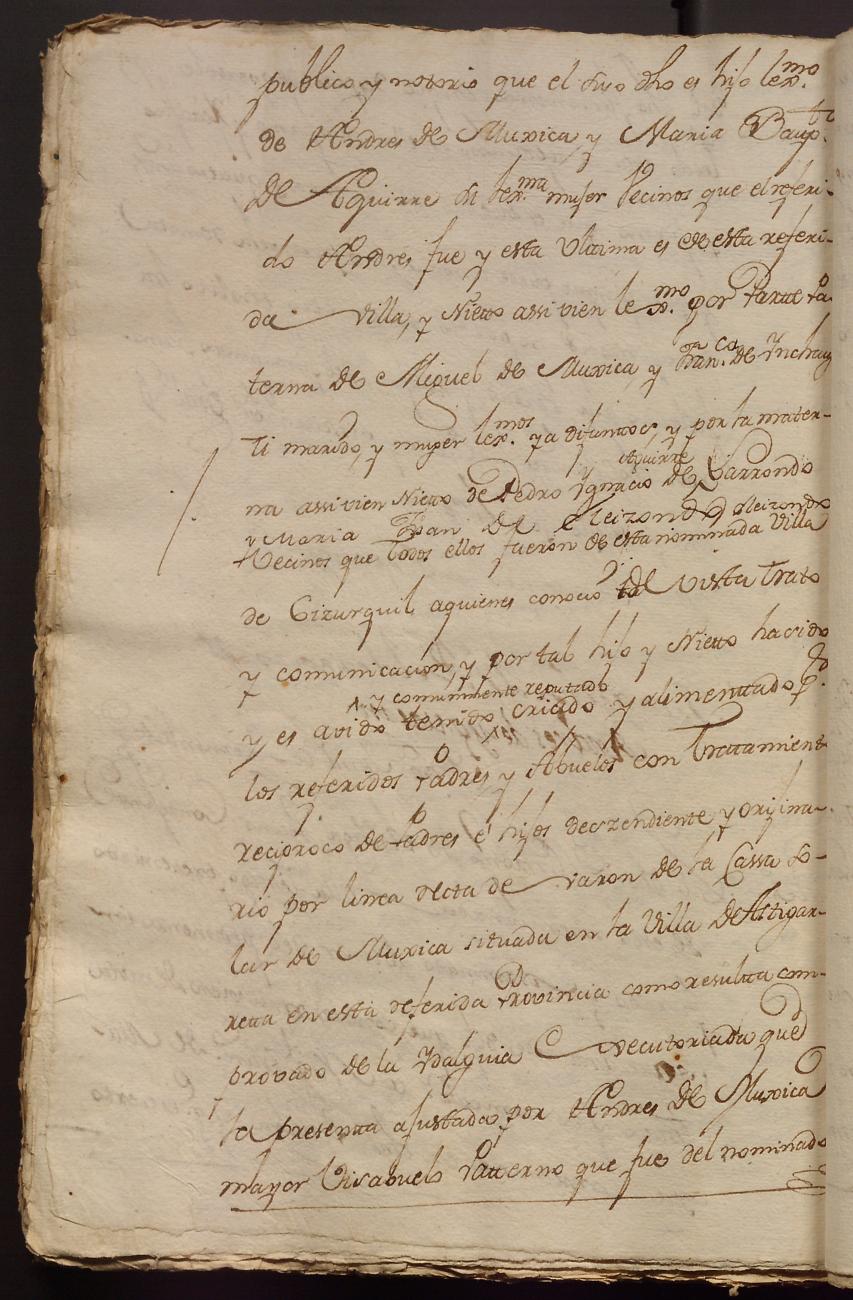 publico y notorio que el suso dho es hijo lexmo.
de Andres de Muxica y Maria Baupta.
de Aguirre su lexma. muger Vecinos que el referi-
do Andres fue y esta Ultima es de esta referi-
da Villa, y Nieto assi vien lexmo. por Parte Pa-
terna de Miguel de Muxica, y Franca. de Ynchaus
ti marido, y muger lexmos. ya difuntos, y por la mater-
y Aguirre
na assi vien Nieto de Pedro Ygnacio de Larrondo
y Maria Juan de Eleizondo
Vecinos que todos ellos fueron de esta nominada Villa
de Cizurquil, aquienes conocio de Vista Trato
y comunicacion, y por tal hijo y Nieto ha sido
y comunmente reputado
y es avido tenido, criado y alimentado por
los referidos Padres, y Abuelos con Tratamient
reciproco de Padres è hijos decendiente y orijina-
rio por linea recta de varon de la Cassa So-
lar de Muxica situada en la Villa de Astigar-
reta en esta referida Provincia como resulta com-
provado de la Ydalguia Executoriada que
la presenta ajustada por Andres de Muxica
mayor Visabuelo Paterno que fue del nominado